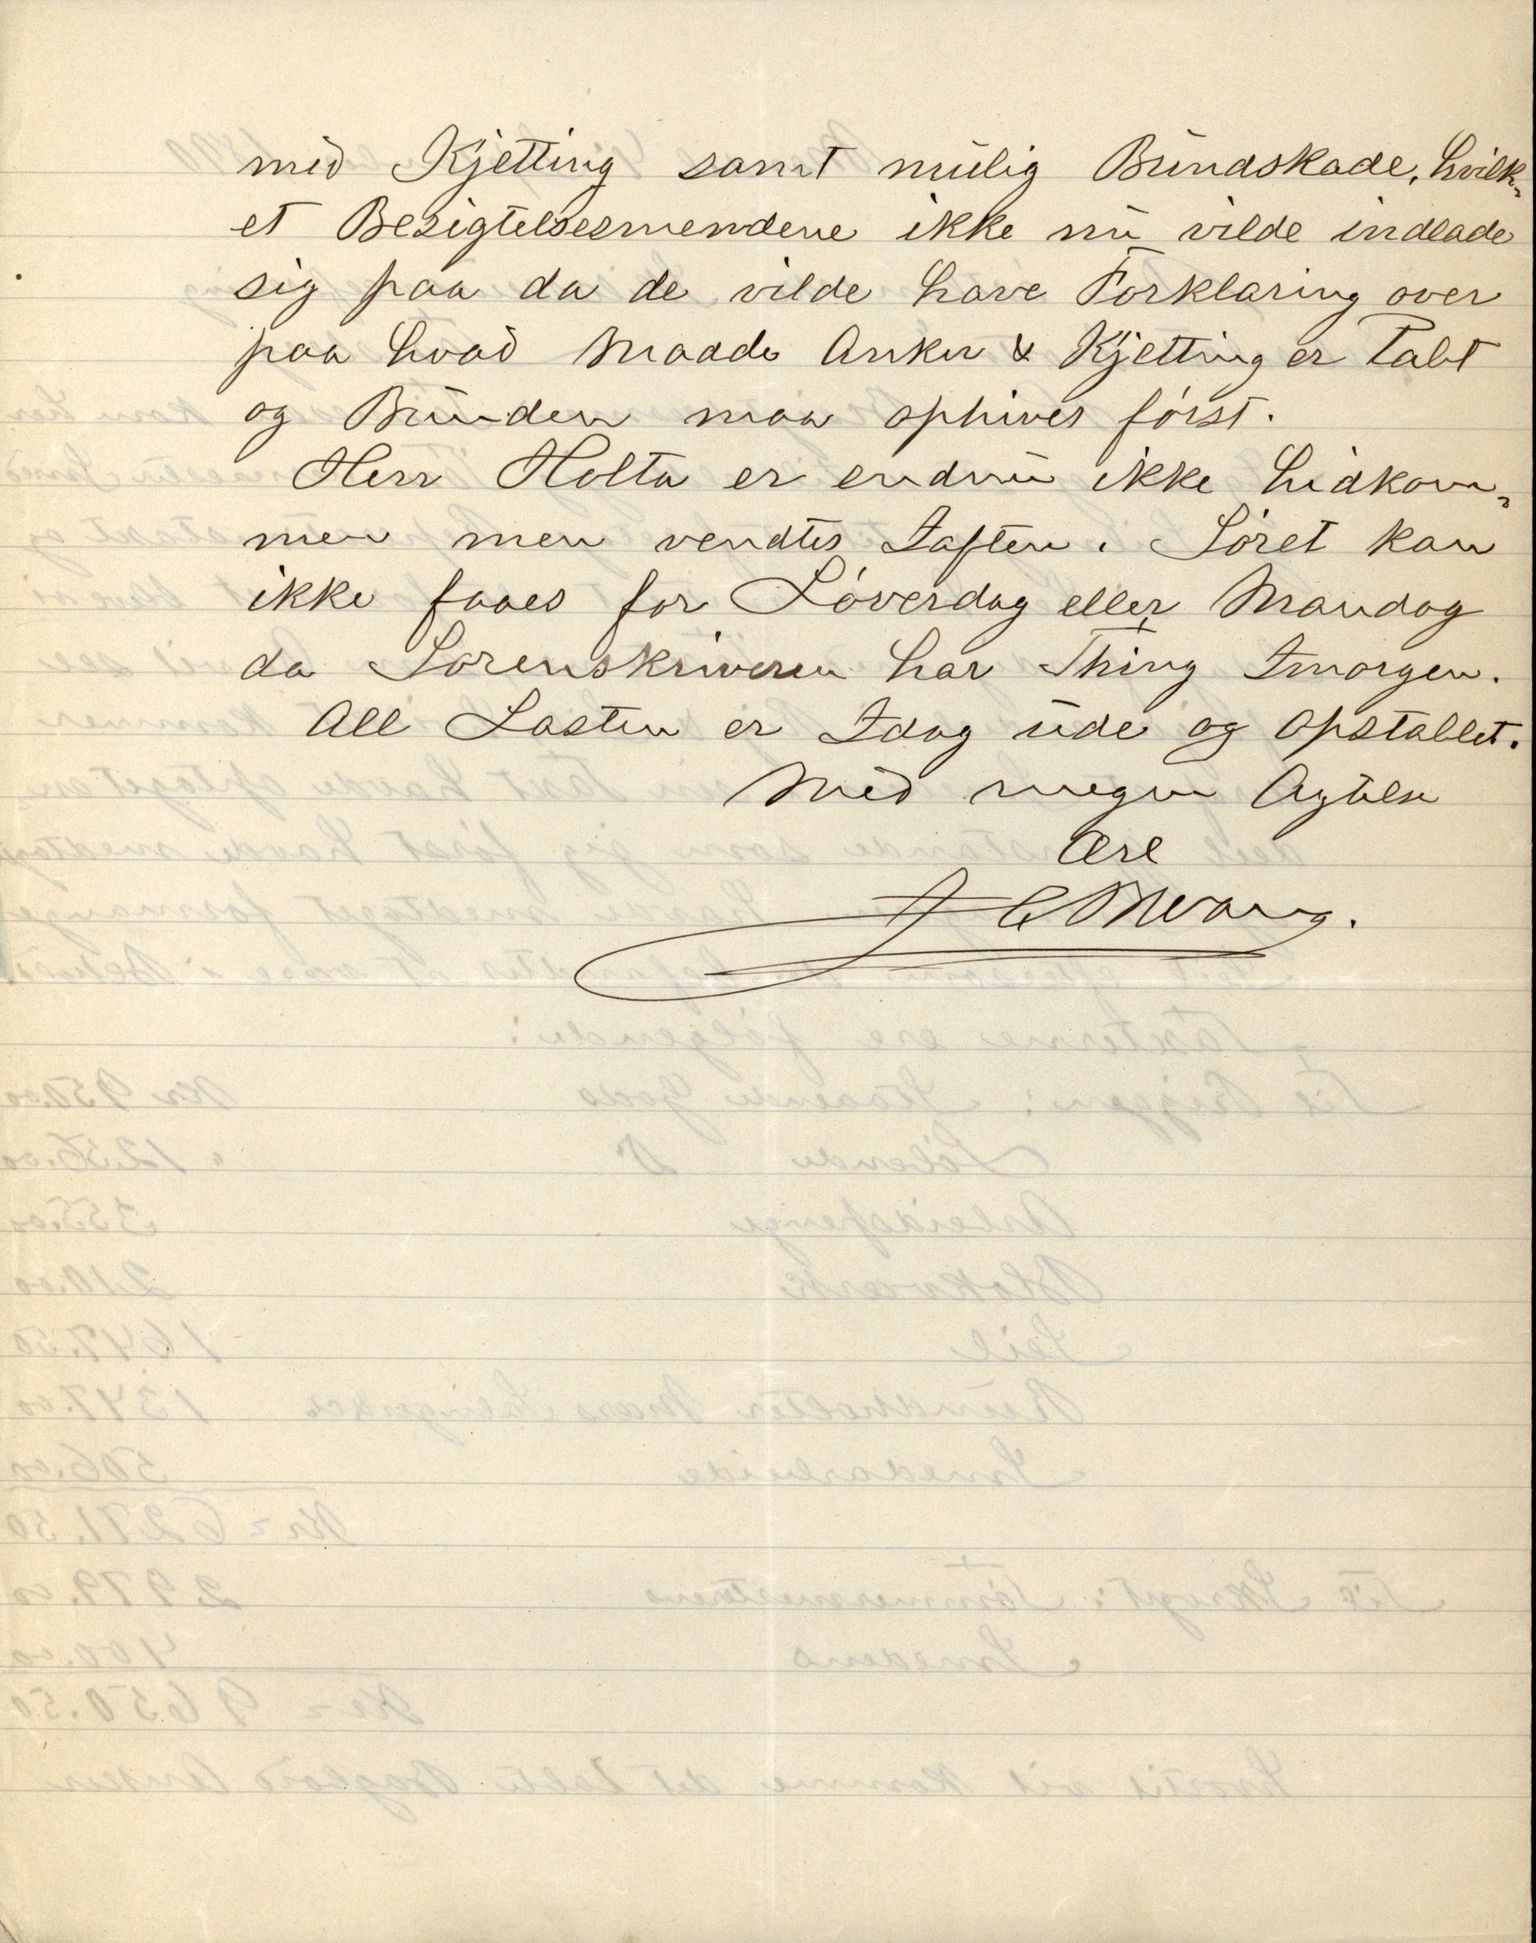 med Kjetting samt mulig Bundskade, hvilk-
et Besigtelsesmendene ikke nu vilde indlade
sig paa da de vilde have Forklaring over
paa hvad Maade Anker & Kjetting er Tabt
og Bunden maa ophives först.
Herr Holta er endnu ikke hidkom-
men men ventdes Iaften. Söret kan
ikke faaes för Löverdag eller Mandag
da Sorenskriveren har Thing Imorgen.
All Lasten er Idag ude og opstablet.
Med megen Agtelse
Ærl